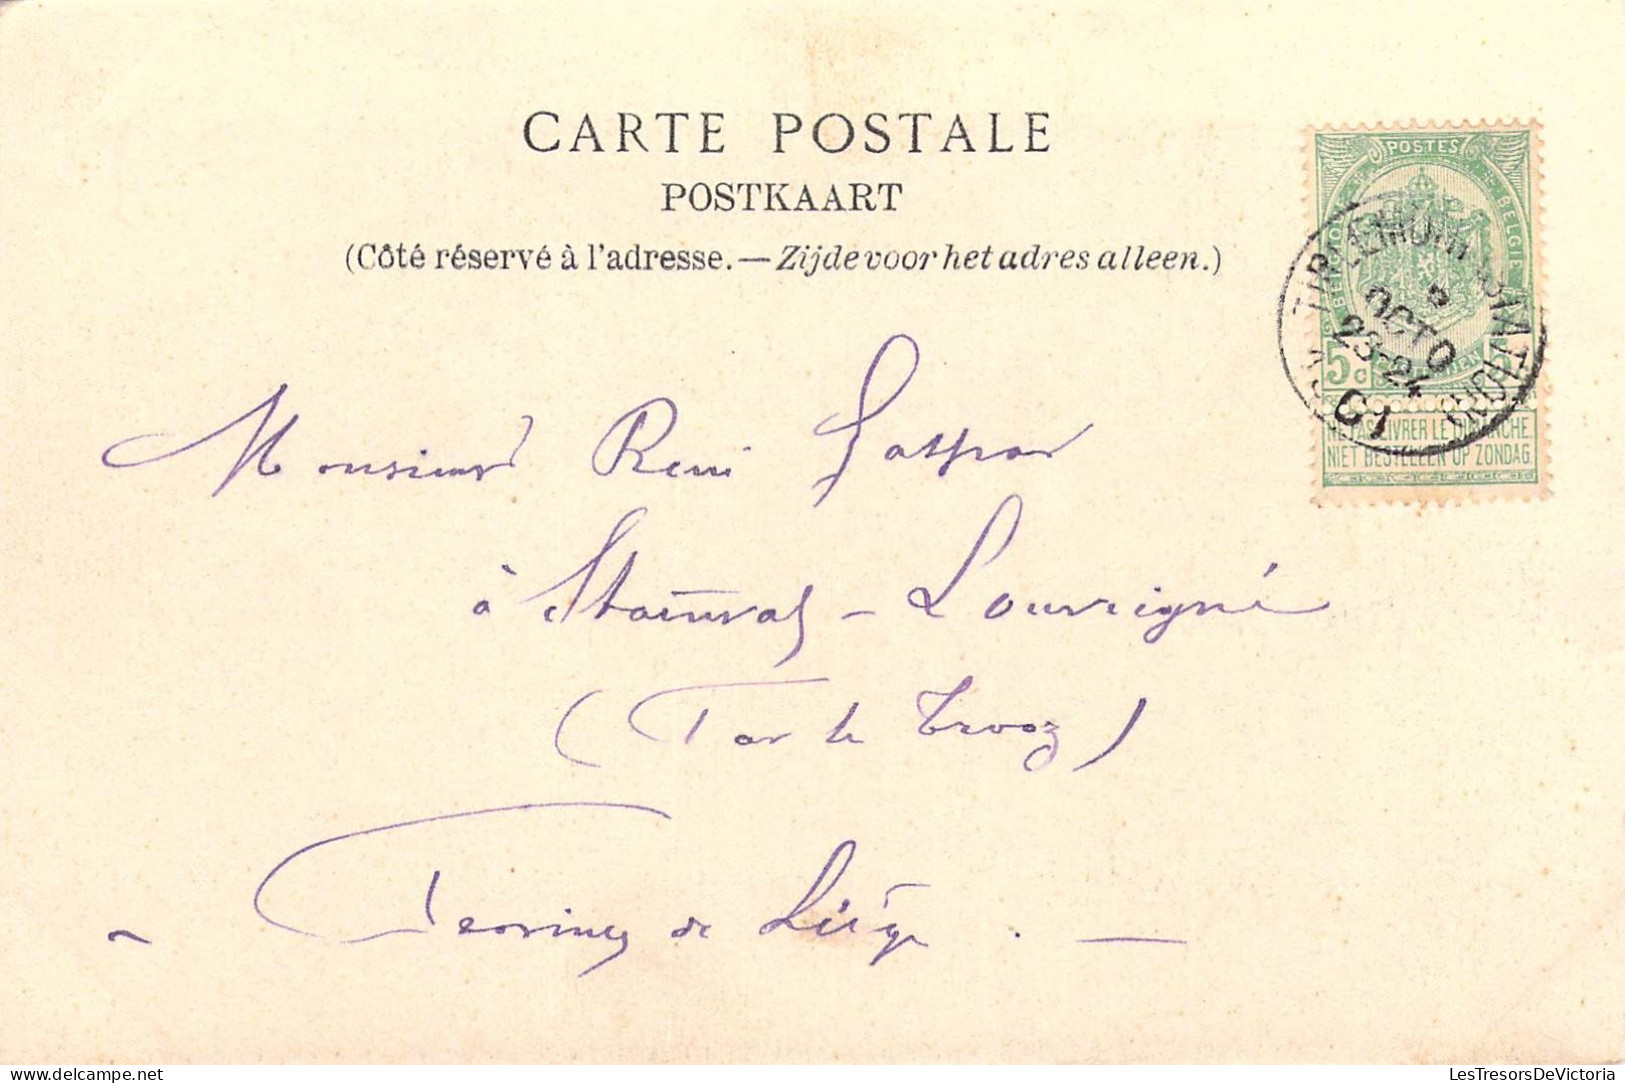 CARTE POSTALE
POSTKAART
(Côté réservé à l'adresse. — Zijde voor het adres alleen.)
POSTES
BELGIE
TIRLEMONT (STATION)
OCTO
23-24
01
5c
NE PAS LIVRER LE DIMANCHE
NIET BESTELLEN OP ZONDAG
Monsieur René Gaspar
à Stainval - Louvrigné
(Par le Trooz)
Province de Liége. —
LesTresorsDeVictoria